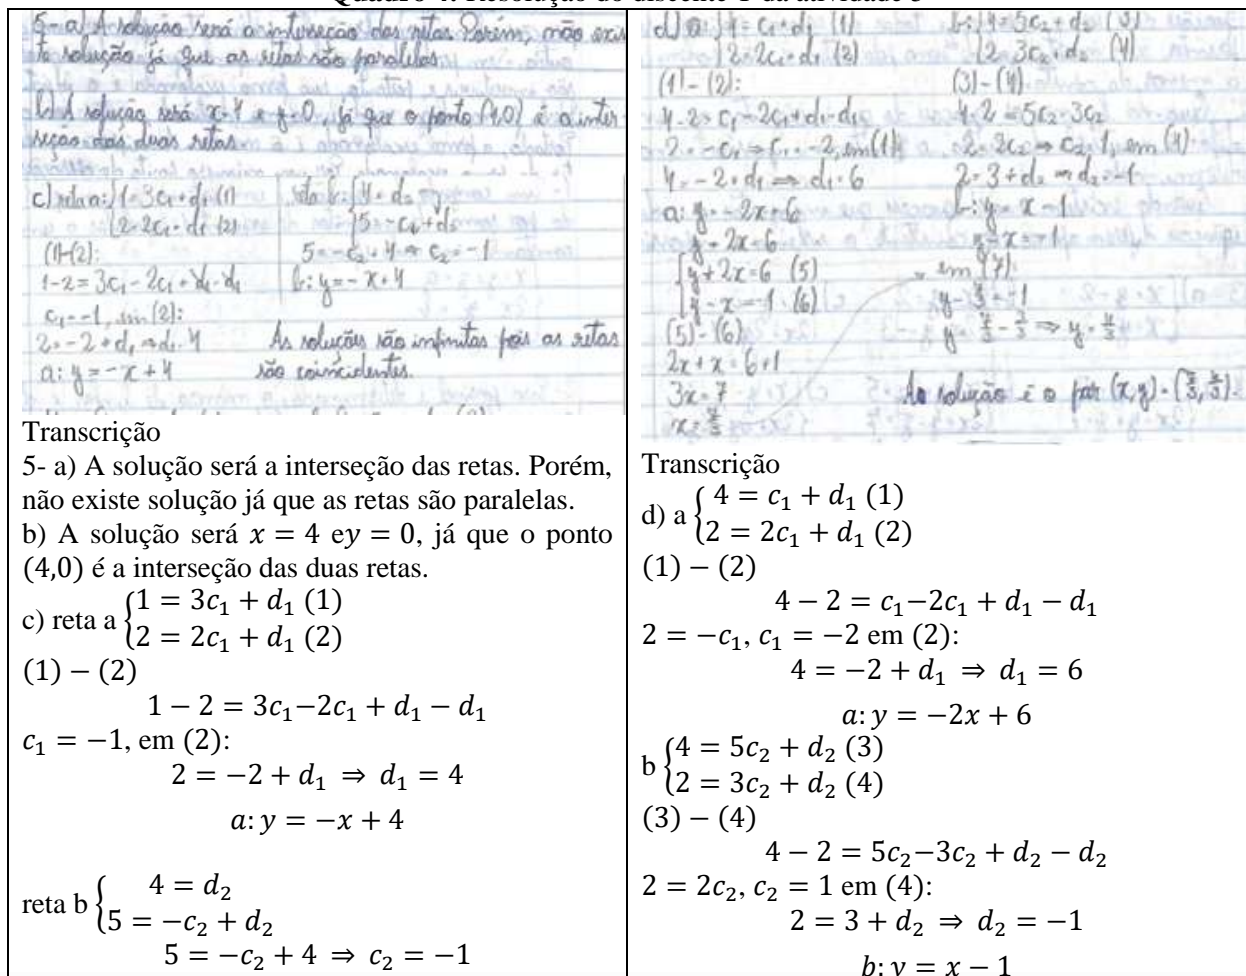 5- a) A solução será a interseção das retas. Porém, não exis
te solução já que as retas são paralelas.
b) A solução será x=4 e y=0, já que o ponto (4,0) é a inter
seção das duas retas.
c) reta a: { 1=3c₁+d₁ (1)
{ 2=2c₁+d₁ (2)
(1)-(2):
1-2=3c₁-2c₁+d₁-d₁
c₁=-1, em (2):
2=-2+d₁ ⇒ d₁=4
a: y=-x+4
reta b: { 4=d₂
{ 5=-c₂+d₂
5=-c₂+4 ⇒ c₂=-1
b: y=-x+4
As soluções são infinitas pois as retas
são coincidentes.
Transcrição
5- a) A solução será a interseção das retas. Porém,
não existe solução já que as retas são paralelas.
b) A solução será x = 4 ey = 0, já que o ponto
(4,0) é a interseção das duas retas.
c) reta a { 1 = 3c₁ + d₁ (1)
{ 2 = 2c₁ + d₁ (2)
(1) − (2)
1 − 2 = 3c₁−2c₁ + d₁ − d₁
c₁ = −1, em (2):
2 = −2 + d₁ ⇒ d₁ = 4
a: y = −x + 4
reta b { 4 = d₂
{ 5 = −c₂ + d₂
5 = −c₂ + 4 ⇒ c₂ = −1
d) a: { 4=c₁+d₁ (1)
{ 2=2c₁+d₁ (2)
(1)-(2):
4-2=c₁-2c₁+d₁-d₁
2=-c₁ ⇒ c₁=-2, em (1):
4=-2+d₁ ⇒ d₁=6
a: y=-2x+6
y+2x=6
{ y+2x=6 (5)
{ y-x=-1 (6)
(5)-(6)
2x+x=6+1
3x=7
x=7/3
b: { 4=5c₂+d₂ (3)
{ 2=3c₂+d₂ (4)
(3)-(4)
4-2=5c₂-3c₂
2=2c₂ ⇒ c₂=1, em (4):
2=3+d₂ ⇒ d₂=-1
b: y=x-1
y-x=-1
em (7):
y-7/3=-1
y=7/3-3/3 ⇒ y=4/3
solução é o par (x,y)=(7/3,4/3).
Transcrição
d) a { 4 = c₁ + d₁ (1)
{ 2 = 2c₁ + d₁ (2)
(1) − (2)
4 − 2 = c₁−2c₁ + d₁ − d₁
2 = −c₁, c₁ = −2 em (2):
4 = −2 + d₁ ⇒ d₁ = 6
a: y = −2x + 6
b { 4 = 5c₂ + d₂ (3)
{ 2 = 3c₂ + d₂ (4)
(3) − (4)
4 − 2 = 5c₂−3c₂ + d₂ − d₂
2 = 2c₂, c₂ = 1 em (4):
2 = 3 + d₂ ⇒ d₂ = −1
b: y = x − 1